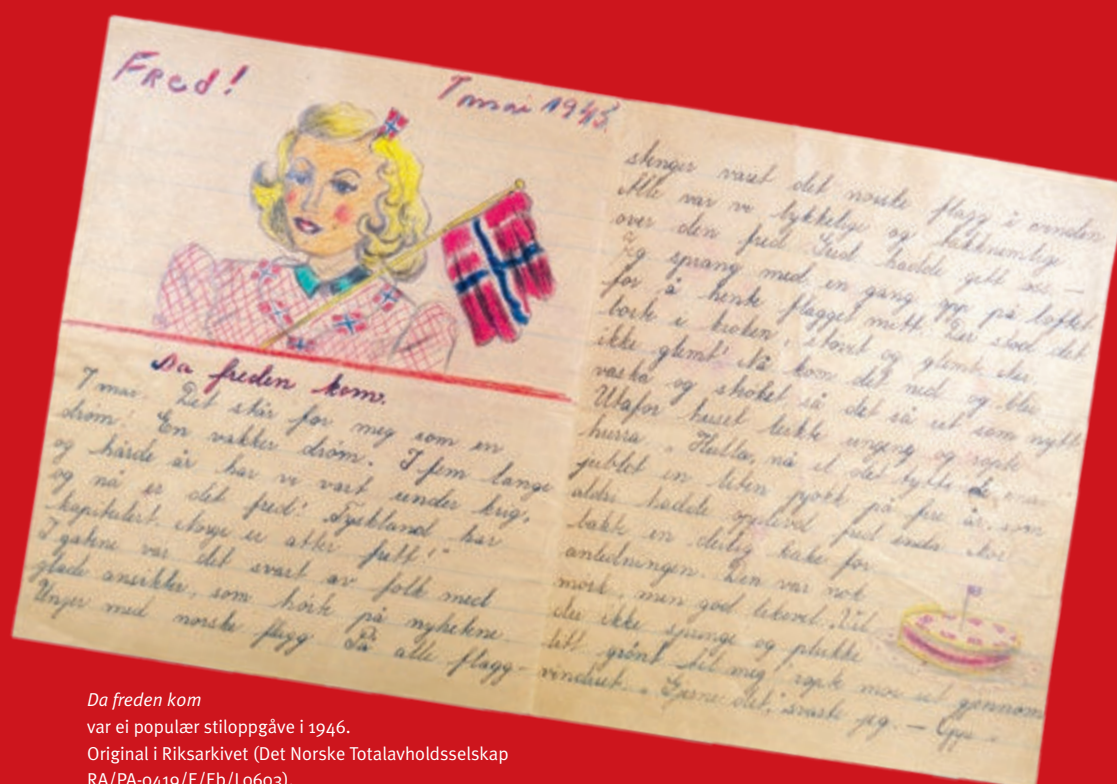 Fred!
7 mai 1945
Da freden kom.
7 mai. Det står for meg som en
drøm! En vakker drøm. I fem lange
og hårde år har vi vært under krig,
og nå er det fred! Tyskland har
kapitulert. Norge er atter fritt!"
I gatene var det svart av folk med
glade ansikter, som hørte på nyhetene
Unger med norske flagg På alle flagg-
stenger vaiet det norske flagg i vinden
Alle var vi lykkelige og takknemlige
over den fred Gud hadde gitt oss. —
Jeg sprang med en gang opp på loftet
for å hente flagget mitt. Der stod det
bort i kroken, støvet og glemt, nei
ikke glemt! Nå kom det ned og ble
vasket og strøket så det så ut som nytt
Utafor huset lekte ungene og ropte
hurra. Hella, nå er det
jublet en liten pjokk på fire år, som
aldri hadde opplevd fred enda. Mor
bakt en deilig kake for
anledningen. Den var nok
mørk, men god likevel. Vil
du ikke springe og plukke
litt grønt til meg, ropte mor ut gjennom
vinduet. Gjerne det, svarte jeg. —
Da freden kom
var ei populær stiloppgåve i 1946.
Original i Riksarkivet (Det Norske Totalavholdsselskap
RA/PA-0419/F/Fb/L0603).